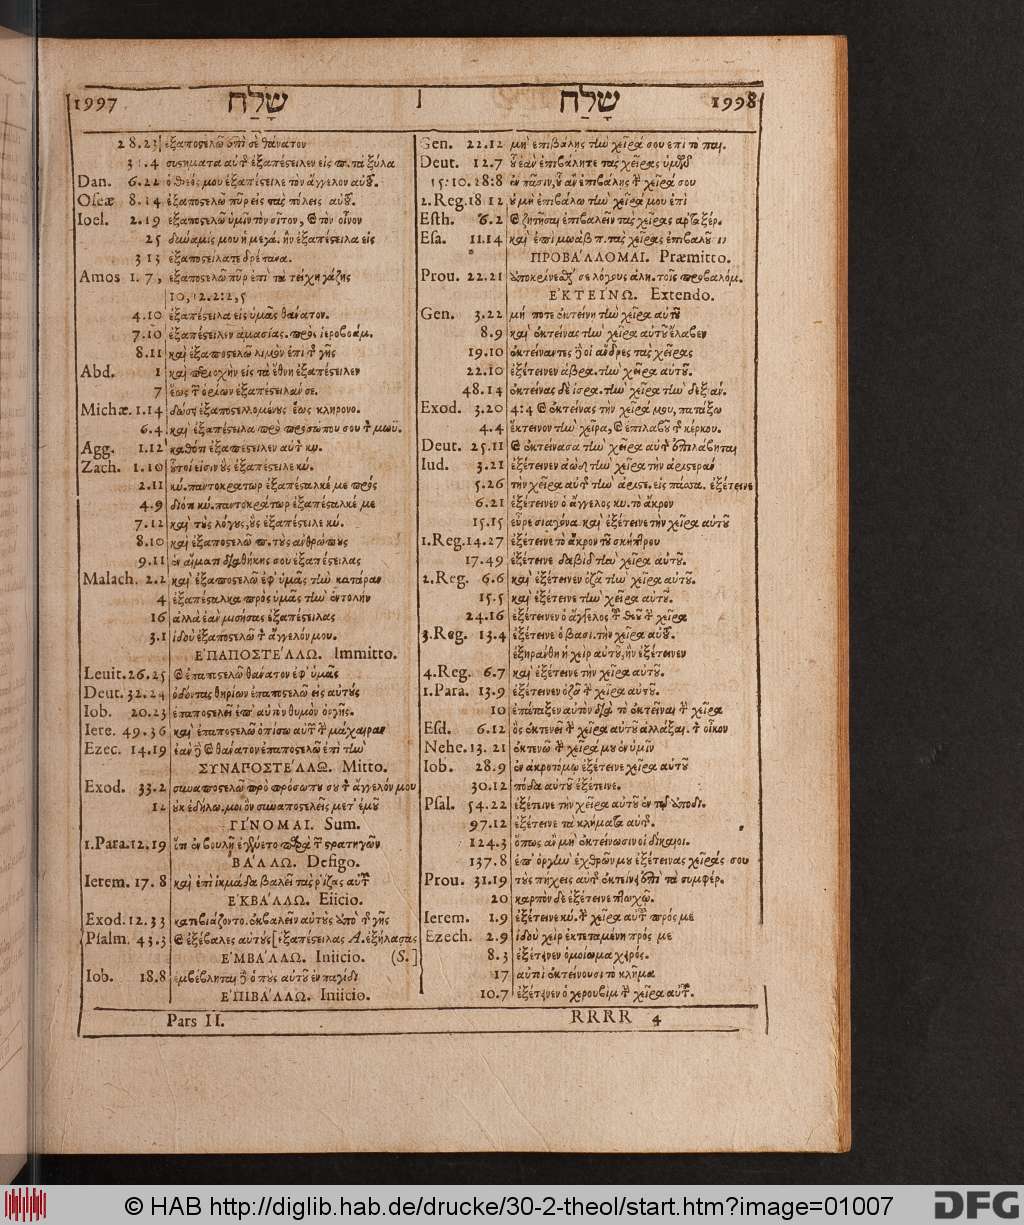 1997 שָׁלַח
שָׁלַח 1998
28.23 ἐξαποστελῶ ἐπὶ σὲ θάνατον
31.4 συστήματα αὐτῆς ἐξαπέστειλεν εἰς π. τὰ ξύλα
Dan. 6.22 ὁ θεός μου ἐξαπέστειλε τὸν ἄγγελον αὐτοῦ.
Oseæ 8.14 ἐξαποστελῶ πῦρ εἰς τὰς πόλεις αὐτοῦ.
Ioel. 2.19 ἐξαποστελῶ ὑμῖν τὸν σῖτον, καὶ τὸν οἶνον
25 δύναμίς μου ἡ μεγά. ἣν ἐξαπέστειλα εἰς
3 13 ἐξαποστείλατε δρέπανα.
Amos 1.7, ἐξαποστελῶ πῦρ ἐπὶ τὰ τείχη γάζης
10, 12.2:2, 5
4.10 ἐξαπέστειλα εἰς ὑμᾶς θάνατον.
7.10 ἐξαπέστειλεν ἀμασίας. πρὸς ἱεροβοάμ.
8.11 καὶ ἐξαποστελῶ λιμὸν ἐπὶ τὴν γῆν
Abd. 1 καὶ περιοχὴν εἰς τὰ ἔθνη ἐξαπέστειλεν
7 ἕως τῶν ὁρίων ἐξαπέστειλάν σε.
Michæ. 1.14 δώσεις ἐξαποστελλομένους ἕως κληρονο.
6.4 καὶ ἐξαπέστειλα πρὸ προσώπου σου τὸν μωϋ.
Agg. 1.12 καθότι ἐξαπέστειλεν αὐτὸν κύ.
Zach. 1.10 οὗτοί εἰσιν οὓς ἐξαπέστειλε κύ.
2.11 κύ. παντοκράτωρ ἐξαπέσταλκέ με πρὸς
4.9 διότι κύ. παντοκράτωρ ἐξαπέσταλκέ με
7.12 καὶ τοὺς λόγους, οὓς ἐξαπέστειλε κύ.
8.10 καὶ ἐξαποστελῶ π. τοὺς ἀνθρώπους
9.11 ἐν αἵματι διαθήκης σου ἐξαπέστειλας
Malach. 2.2 καὶ ἐξαποστελῶ ἐφ' ὑμᾶς τὴν κατάραν
4 ἐξαπέσταλκα πρὸς ὑμᾶς τὴν ἐντολὴν
16 ἀλλὰ ἐὰν μισήσας ἐξαπέστειλας
3.1 ἰδοὺ ἐξαποστελῶ τὸν ἄγγελόν μου.
ἘΠΑΠΟΣΤΕΛΛΩ. Immitto.
Leuit. 26.25 καὶ ἐπαποστελῶ θάνατον ἐφ' ὑμᾶς
Deut. 32.24 ὀδόντας θηρίων ἐπαποστελῶ εἰς αὐτοὺς
Iob. 20.23 ἐπαποστελεῖ ἐπ' αὐτὸν θυμὸν ὀργῆς.
Iere. 49.36 καὶ ἐπαποστελῶ ὀπίσω αὐτῶν τὴν μάχαιραν
Ezec. 14.19 ἐὰν δὲ καὶ θάνατον ἐπαποστελῶ ἐπὶ τὴν
ΣΥΝΑΠΟΣΤΕΛΛΩ. Mitto.
Exod. 33.2 συναποστελῶ πρὸ προσώπου σου τὸν ἄγγελόν μου
12 οὐκ ἐδήλω. μοι ὃν συναποστελεῖς μετ' ἐμοῦ
ΓΙΝΟΜΑΙ. Sum.
1.Para. 12.19 ὅτι ἐν βουλῇ ἐγένετο παρὰ τῶν στρατηγῶν
ΒΑΛΛΩ. Defigo.
Ierem. 17.8 καὶ ἐπὶ ἰκμάδα βαλεῖ τὰς ῥίζας αὐτοῦ
ἘΚΒΑΛΛΩ. Eiicio.
Exod. 12.33 κατεβιάζοντο. ἐκβαλεῖν αὐτοὺς ὑπὸ τῆς γῆς
Psalm. 43.3 καὶ ἐξέβαλες αὐτούς [ἐξαπέστειλας A. ἐξήλασας
ἘΜΒΑΛΛΩ. Iniicio. (S.]
Iob. 18.8 ἐμβέβληται δὲ ὁ ποὺς αὐτοῦ ἐν παγίδι
ἘΠΙΒΑΛΛΩ. Iniicio.
Gen. 22.12 μὴ ἐπιβάλῃς τὴν χεῖρά σου ἐπὶ τὸ παι.
Deut. 12.7 οὗ ἐὰν ἐπιβάλητε τὰς χεῖρας ὑμῶν
15:10. 28:8 ἐν πᾶσιν, οὗ ἂν ἐπιβάλῃς τὴν χεῖρά σου
1.Reg. 18 12 οὐ μὴ ἐπιβάλω τὴν χεῖρά μου ἐπὶ
Esth. 6.2 καὶ ζητῆσαι ἐπιβαλεῖν τὰς χεῖρας ἀρταξέρ.
Esa. 11.14 καὶ ἐπὶ μωὰβ π. τὰς χεῖρας ἐπιβαλοῦσι
ΠΡΟΒΑΛΛΟΜΑΙ. Præmitto.
Prou. 22.21 ἀποκρίνεσθαί σε λόγους ἀλη. τοῖς προβαλομ.
ἘΚΤΕΙΝΩ. Extendo.
Gen. 3.22 μή ποτε ἐκτείνῃ τὴν χεῖρα αὐτοῦ
8.9 καὶ ἐκτείνας τὴν χεῖρα αὐτοῦ ἔλαβεν
19.10 ἐκτείναντες δὲ οἱ ἄνδρες τὰς χεῖρας
22.10 ἐξέτεινεν ἁβρα. τὴν χεῖρα αὐτοῦ.
48.14 ἐκτείνας δὲ ἰσρα. τὴν χεῖρα τὴν δεξιάν.
Exod. 3.20 4:4 καὶ ἐκτείνας τὴν χεῖρά μου, πατάξω
4.4 ἔκτεινον τὴν χεῖρα, καὶ ἐπιλαβοῦ τῆς κέρκου.
Deut. 25.11 καὶ ἐκτείνασα τὴν χεῖρα αὐτῆς ἐπιλάβηται
Iud. 3.21 ἐξέτεινεν ἀὼδ τὴν χεῖρα τὴν ἀριστερὰν
5.26 τὴν χεῖρα αὐτῆς τὴν ἀριστε. εἰς πάσσα. ἐξέτεινε
6.21 ἐξέτεινεν ὁ ἄγγελος κυ. τὸ ἄκρον
15.15 εὗρε σιαγόνα καὶ ἐξέτεινε τὴν χεῖρα αὐτοῦ
1.Reg. 14.27 ἐξέτεινε τὸ ἄκρον τοῦ σκήπτρου
17.49 ἐξέτεινε δαβὶδ τὴν χεῖρα αὐτοῦ.
2.Reg. 6.6 καὶ ἐξέτεινεν ὀζὰ τὴν χεῖρα αὐτοῦ.
15.5 καὶ ἐξέτεινε τὴν χεῖρα αὐτοῦ.
24.16 ἐξέτεινεν ὁ ἄγγελος τοῦ θεοῦ τὴν χεῖρα
3.Reg. 13.4 ἐξέτεινε ὁ βασι. τὴν χεῖρα αὐτοῦ.
ἐξηράνθη ἡ χεὶρ αὐτοῦ, ἣν ἐξέτεινεν
4.Reg. 6.7 καὶ ἐξέτεινε τὴν χεῖρα αὐτοῦ.
1.Para. 13.9 ἐξέτεινεν ὀζὰ τὴν χεῖρα αὐτοῦ.
10 ἐπάταξεν αὐτὸν διὰ τὸ ἐκτεῖναι τὴν χεῖρα
Esd. 6.12 ὃς ἐκτενεῖ τὴν χεῖρα αὐτοῦ ἀλλάξαι. τὸν οἶκον
Nehe. 13. 21 ἐκτενῶ τὴν χεῖρά μου ἐν ὑμῖν
Iob. 28.9 ἐν ἀκροτόμῳ ἐξέτεινε χεῖρα αὐτοῦ
30.12 πόδα αὐτοῦ ἐξέτεινε.
Psal. 54.22 ἐξέτεινε τὴν χεῖρα αὐτοῦ ἐν τῷ ἀποδι.
97.12 ἐξέτεινε τὰ κλήματα αὐτῆς.
124.3 ὅπως ἂν μὴ ἐκτείνωσιν οἱ δίκαιοι.
137.8 ἐπ' ὀργὴν ἐχθρῶν μου ἐξέτεινας χεῖράς σου
Prou. 31.19 τοὺς πήχεις αὐτῆς ἐκτείνει ἐπὶ τὰ συμφέρ.
20 καρπὸν δὲ ἐξέτεινε πτωχῷ.
Ierem. 1.9 ἐξέτεινε κύ. τὴν χεῖρα αὐτοῦ πρός με
Ezech. 2.9 ἰδοὺ χεὶρ ἐκτεταμένη πρός με
8.3 ἐξέτεινεν ὁμοίωμα χειρός.
17 αὐτοὶ ἐκτείνουσι τὸ κλῆμα
10.7 ἐξέτεινεν ὁ χερουβὶμ τὴν χεῖρα αὐτοῦ.
Pars II.
RRRR 4
© HAB http://diglib.hab.de/drucke/30-2-theol/start.htm?image=01007
DFG